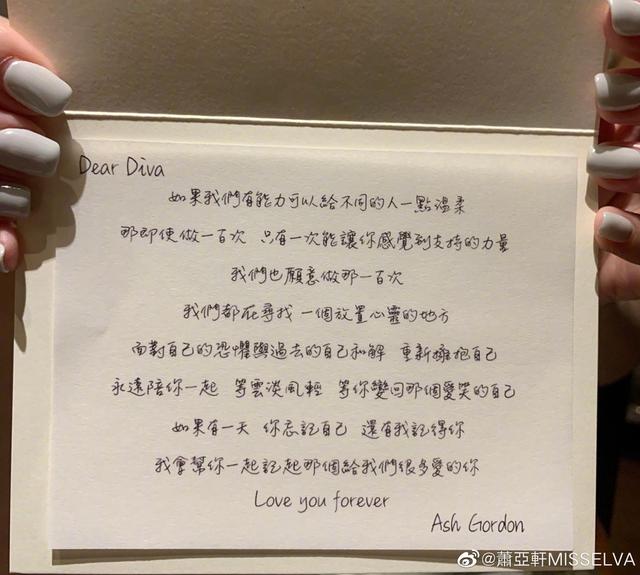 Dear Diva
如果我們有能力可以給不同的人一點溫柔
那即使做一百次 只有一次能讓你感覺到支持的力量
我們也願意做那一百次
我們都在尋找 一個放置心靈的地方
面對自己的恐懼與過去的自己和解 重新擁抱自己
永遠陪你一起 等雲淡風輕 等你變回那個愛笑的自己
如果有一天 你忘記自己 還有我記得你
我會幫你一起記起那個給我們很多愛的你
Love you forever
Ash Gordon
@蕭亞軒MISSELVA